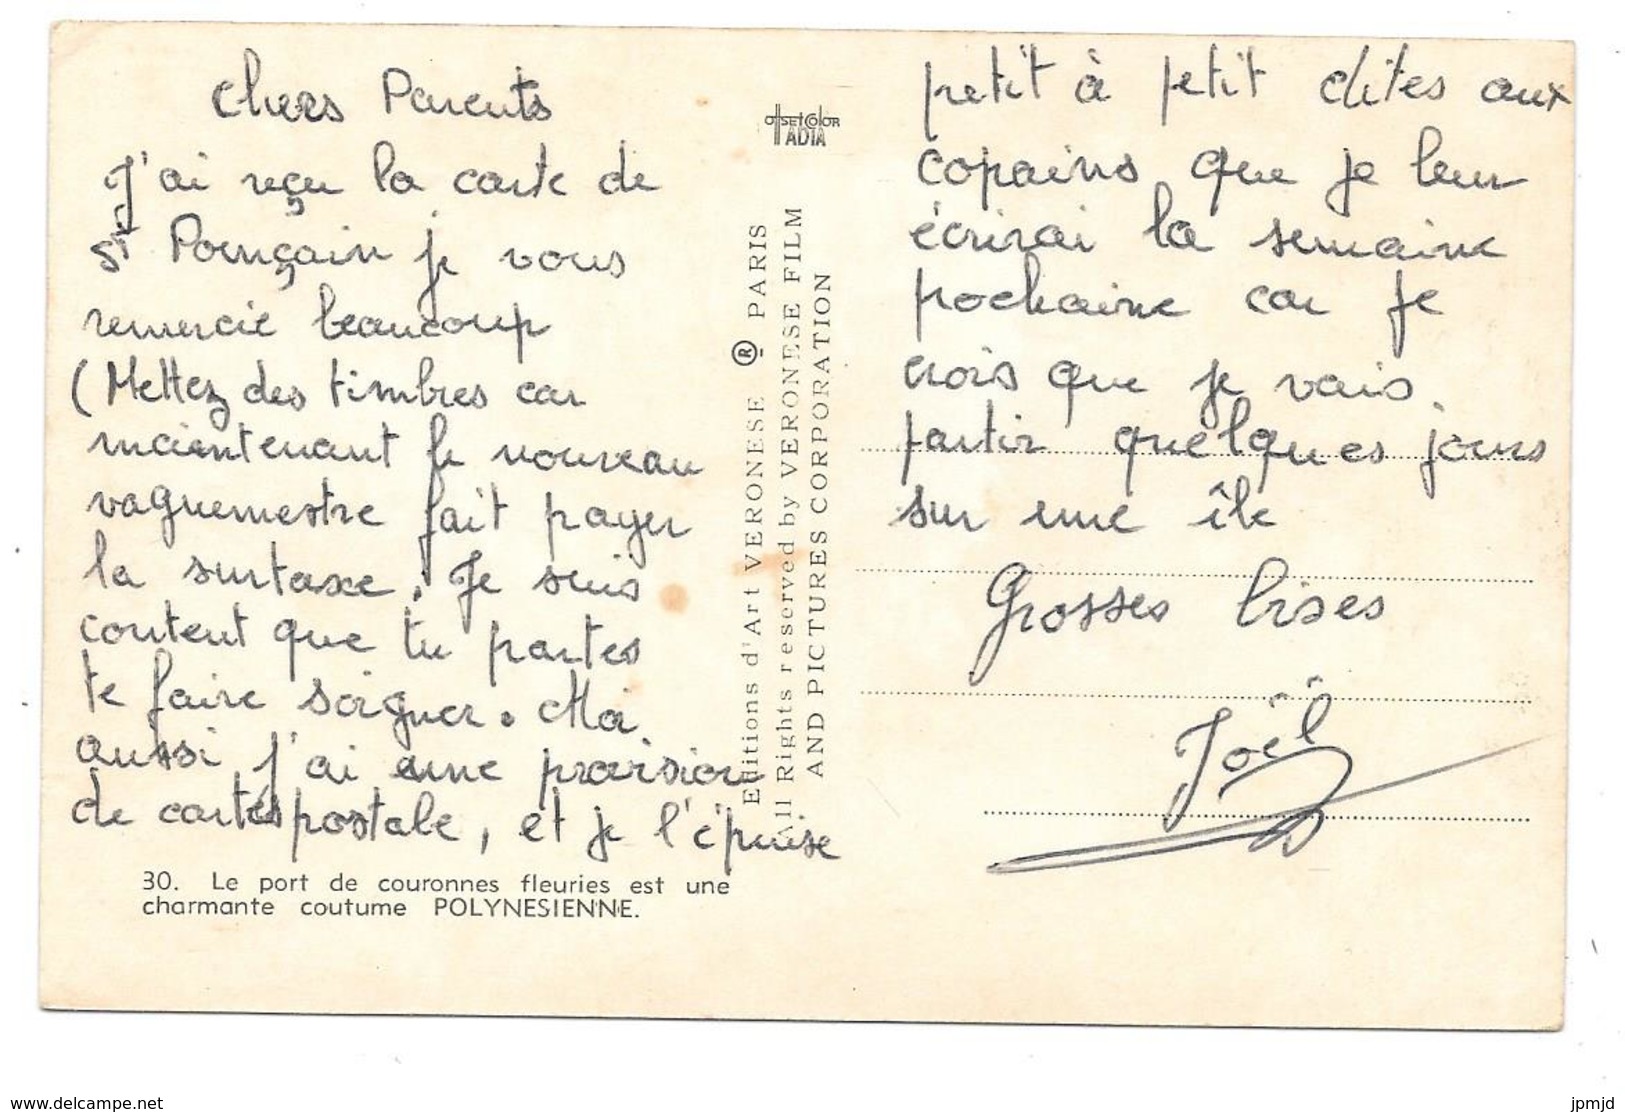 Chers Parents
J'ai reçu la carte de
St Pourçain je vous
remercie beaucoup
(Mettez des timbres car
maintenant le nouveau
vaguemestre fait payer
la surtaxe. Je suis
content que tu partes
te faire soigner. Moi
aussi j'ai une provision
de cartes postale, et je l'épuise
30. Le port de couronnes fleuries est une
charmante coutume POLYNESIENNE.
OffsetColor
IADIA
Editions d'Art VERONESE ® PARIS
All Rights reserved by VERONESE FILM
AND PICTURES CORPORATION
petit à petit dites aux
copains que je leur
écrirai la semaine
prochaine car je
crois que je vais
partir quelques jours
sur une île
Grosses bises
Joël
www.delcampe.net
jpmjd